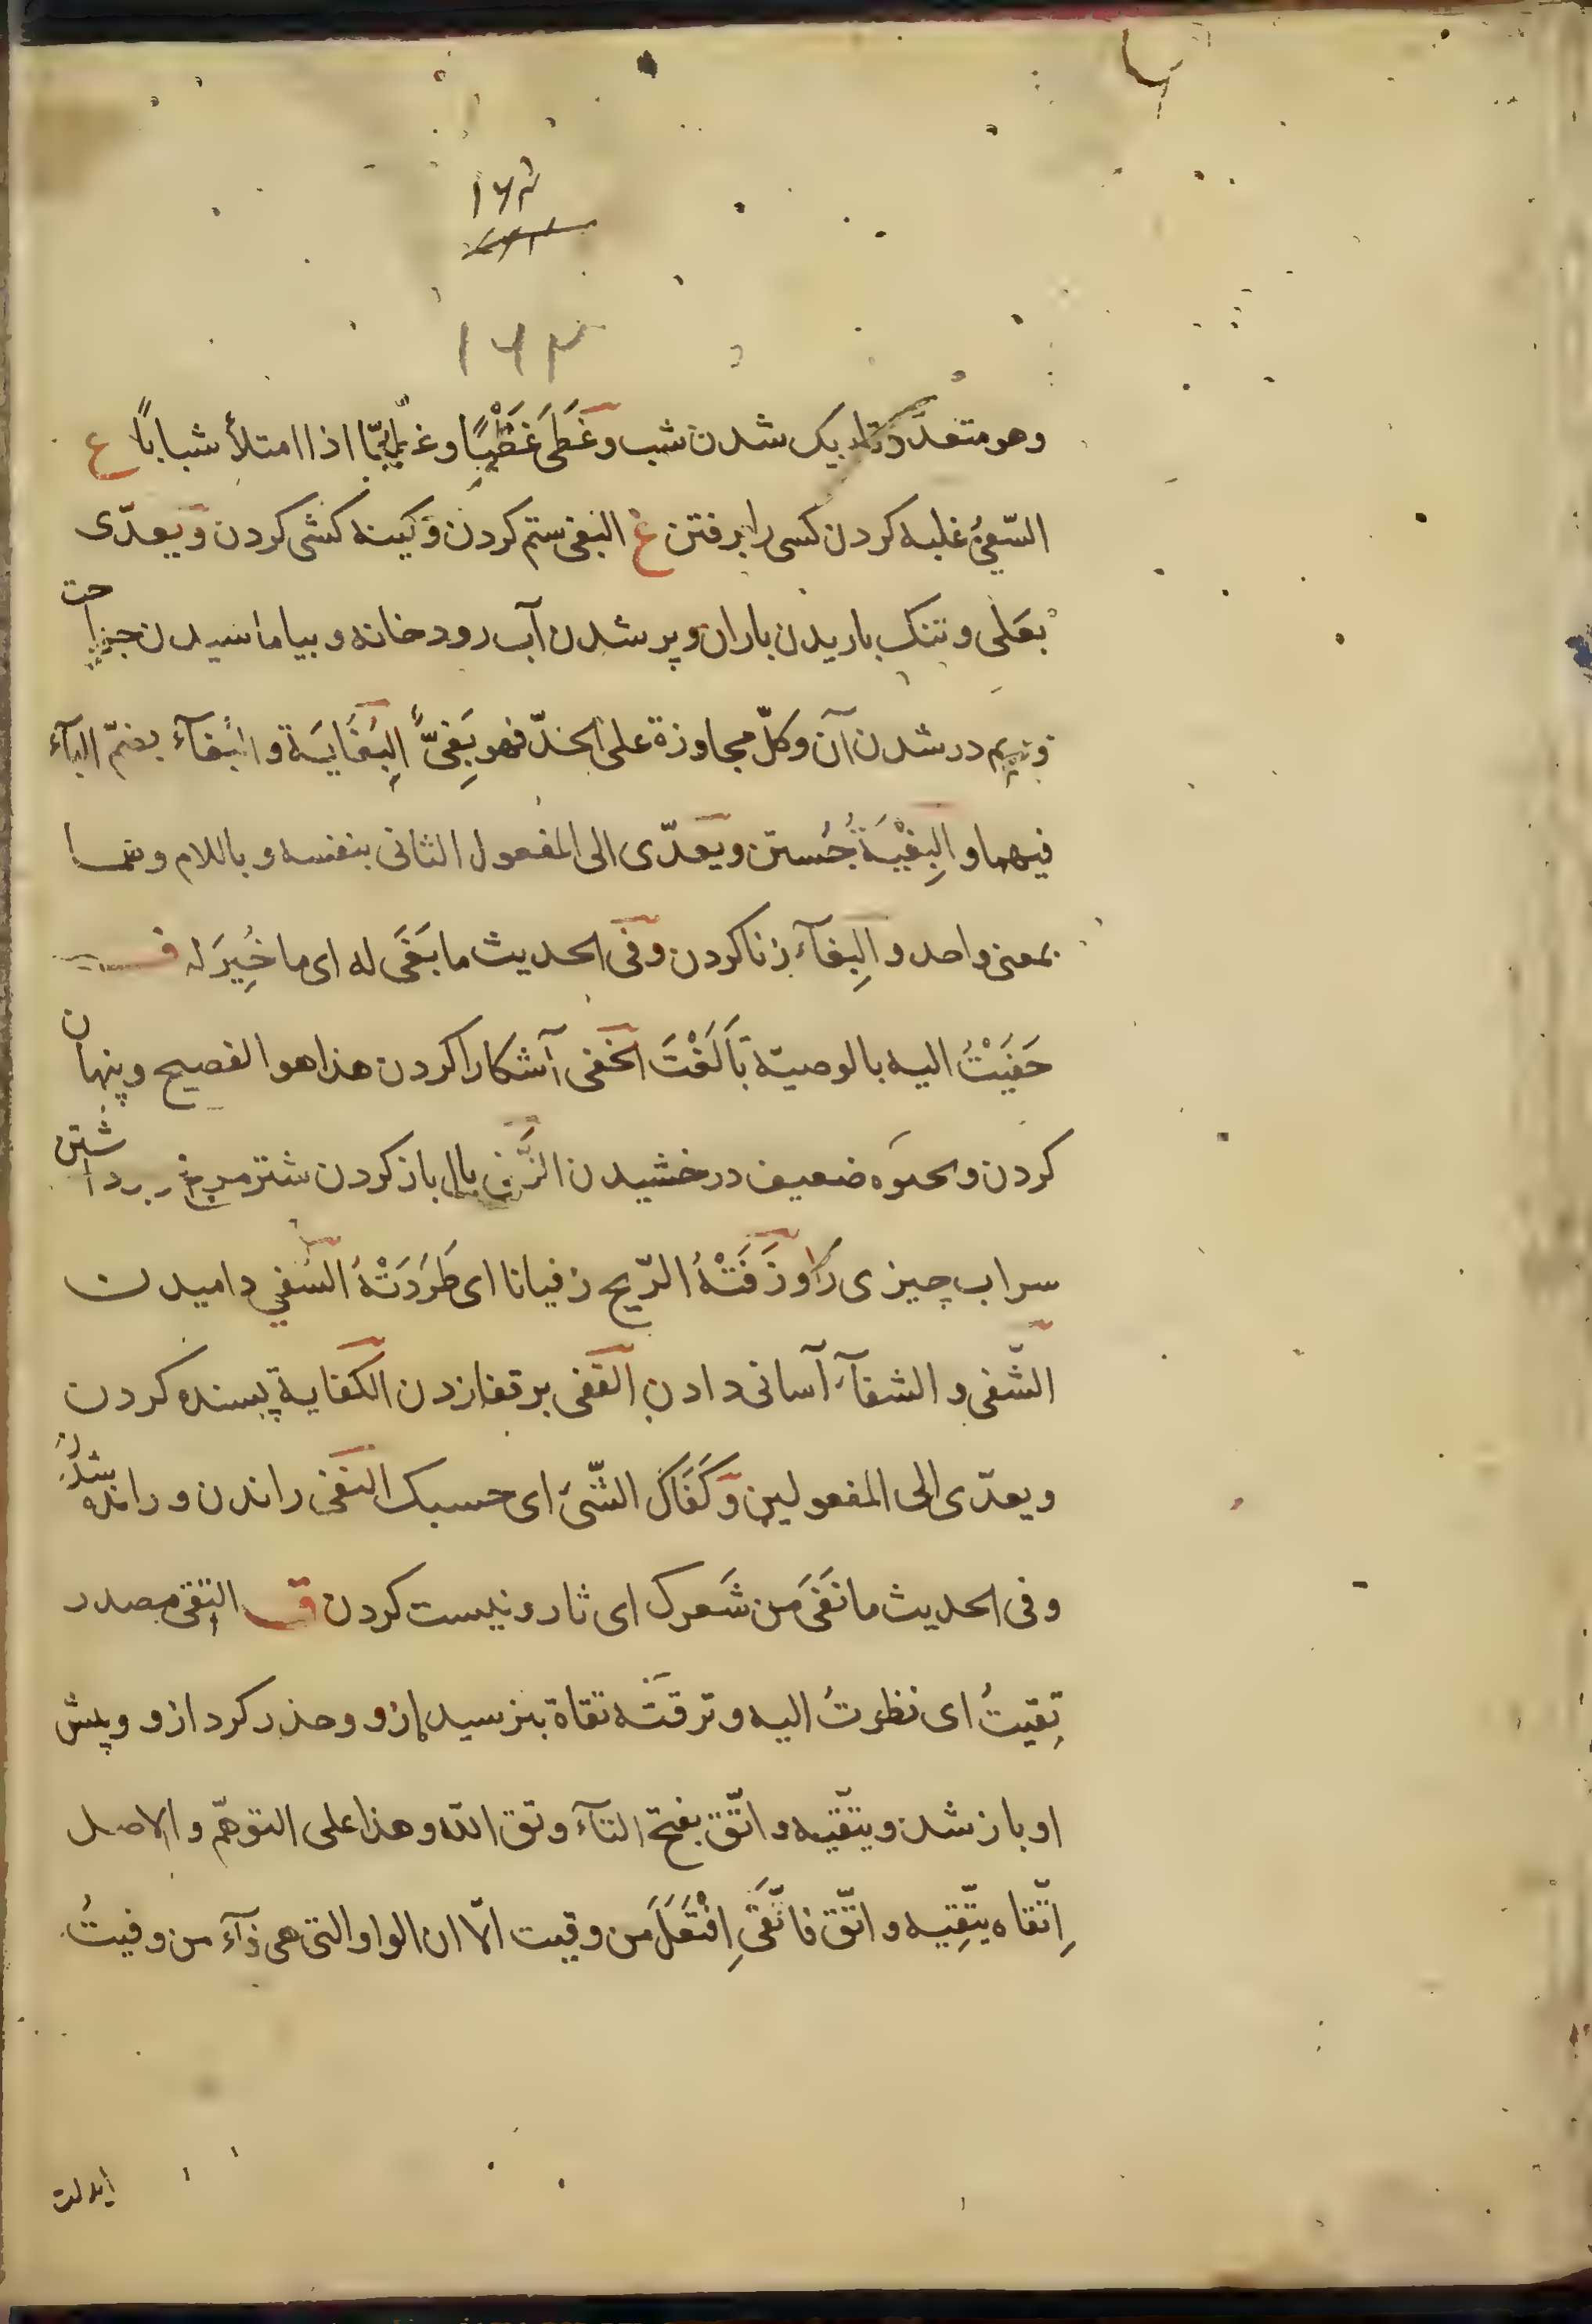 ۱۶۳
۱۶۳
وهو متعدّ وتاریک شدن شب وغَطَى غَطْیًا وغطیًّا اذا امتلأ شبابًا ع
السّعیُ غلبه کردن کسی را برفتن غ البغی ستم کردن وکینه کشی کردن ویعدّی
بعَلی وتنک باریدن باران وپر شدن آب رودخانه وبیاماسیدن جراحت
وریم در شدن آن وکلّ مجاوزة علی الحدّ فهو بَغِیٌّ البُغَایَة والبُغآء بضمّ البآء
فیهما والبِغْیَةُ جُستن ویعدّی الی المفعول الثانی بنفسه وباللام وهما
بمعنی واحد والبِغآء زنا کردن وفی الحدیث ما بَغَی له ای ما خُیِرَ له ف
حَفَیْتُ الیه بالوصیّة بَالَغْتَ الخفی آشکارا کردن هذا هو الفصیح وپنهان
کردن ونحوَه ضعیف درخشیدن الزَّفی بال باز کردن شترمرغ برداشتن
سراب چیزی را وزَفَتْهُ الرّیح زفیانا ای طَرَدَتْهُ السَفی دامیدن
الشّفی والشفآء آسانی دادن القَفی برقفا زدن الکفایة پسنده کردن
ویعدّی الی المفعولین وَکَفَاکَ الشّیَٔ ای حسبک النَفی راندن ورانده شدن
وفی الحدیث ما نَفَیَ مَن شَعرک ای ثار ونیست کردن ق التقی مصدر
تِقیتُ ای نظرتُ الیه وترقبته تقاة بترسید ازو وحذر کرد ازو وپیش
او باز شدن ویتّقیه واتّق بفتح التآء وتق اللّه وهذا علی التوهّم والاصل
اِتّقاه یتّقِیه واتّق فاتّقَی اِفْتَعَلَ من وقیت الّا ان الواو التی هی فآء من وقیتُ
ابدلت